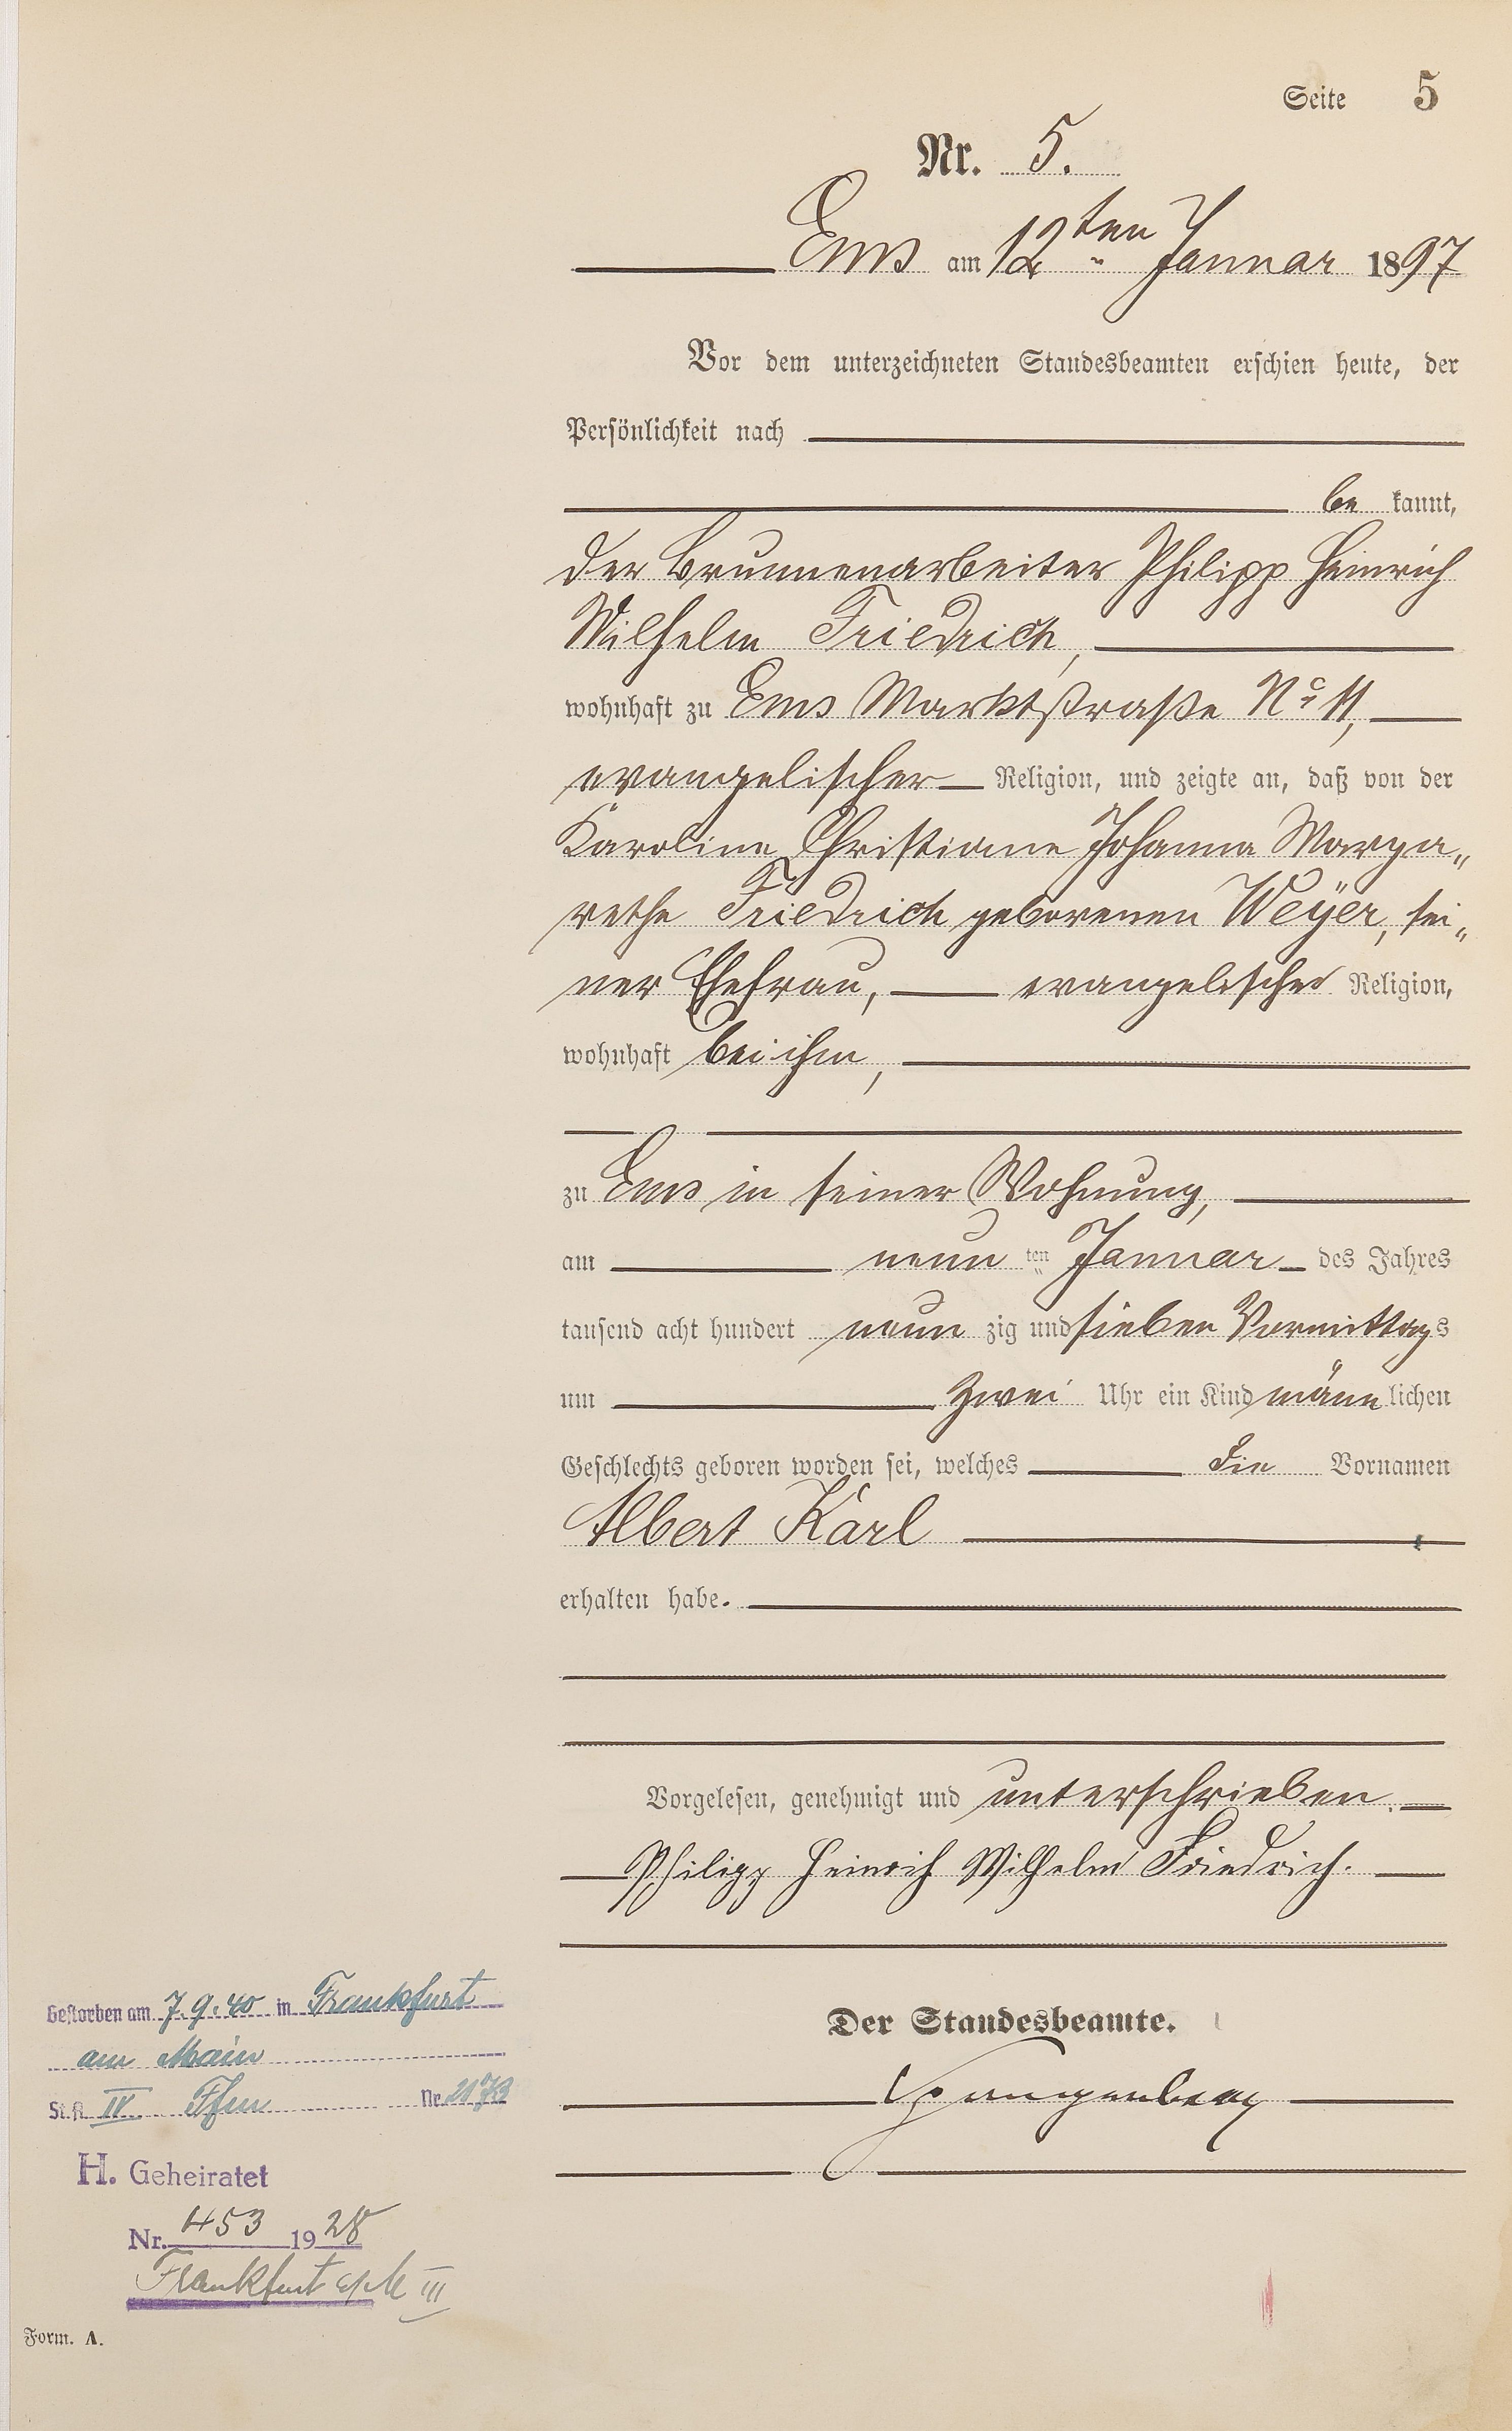 Seite 5
Nr. 5.
Ems am 12ten Januar 1897
Vor dem unterzeichneten Standesbeamten erschien heute, der
Persönlichkeit nach
be kannt,
der Brunnenarbeiter Philipp Heinrich
Wilhelm Friedrich,
wohnhaft zu Ems Marktstraße No 11,
evangelischer Religion, und zeigte an, daß von der
Karoline Christiane Johanna Marga„
rethe Friedrich geborenen Weÿer, sei„
ner Ehefrau, evangelischer Religion,
wohnhaft bei ihm,
zu Ems in seiner Wohnung,
am neun ten Januar des Jahres
tausend acht hundert neun zig und sieben Vormittags
um zwei Uhr ein Kind männlichen
Geschlechts geboren worden sei, welches die Vornamen
Albert Karl
erhalten habe.
Vorgelesen, genehmigt und unterschrieben.
Philipp Heinrich Wilhelm Friedrich.
Der Standesbeamte.
Spangenberg
Gestorben am 7.9.40 in Frankfurt
am Main
St.A. IV Ffm Nr. 2173
H. Geheiratet
Nr. 453 1928
Frankfurt a/M III
Form. A.